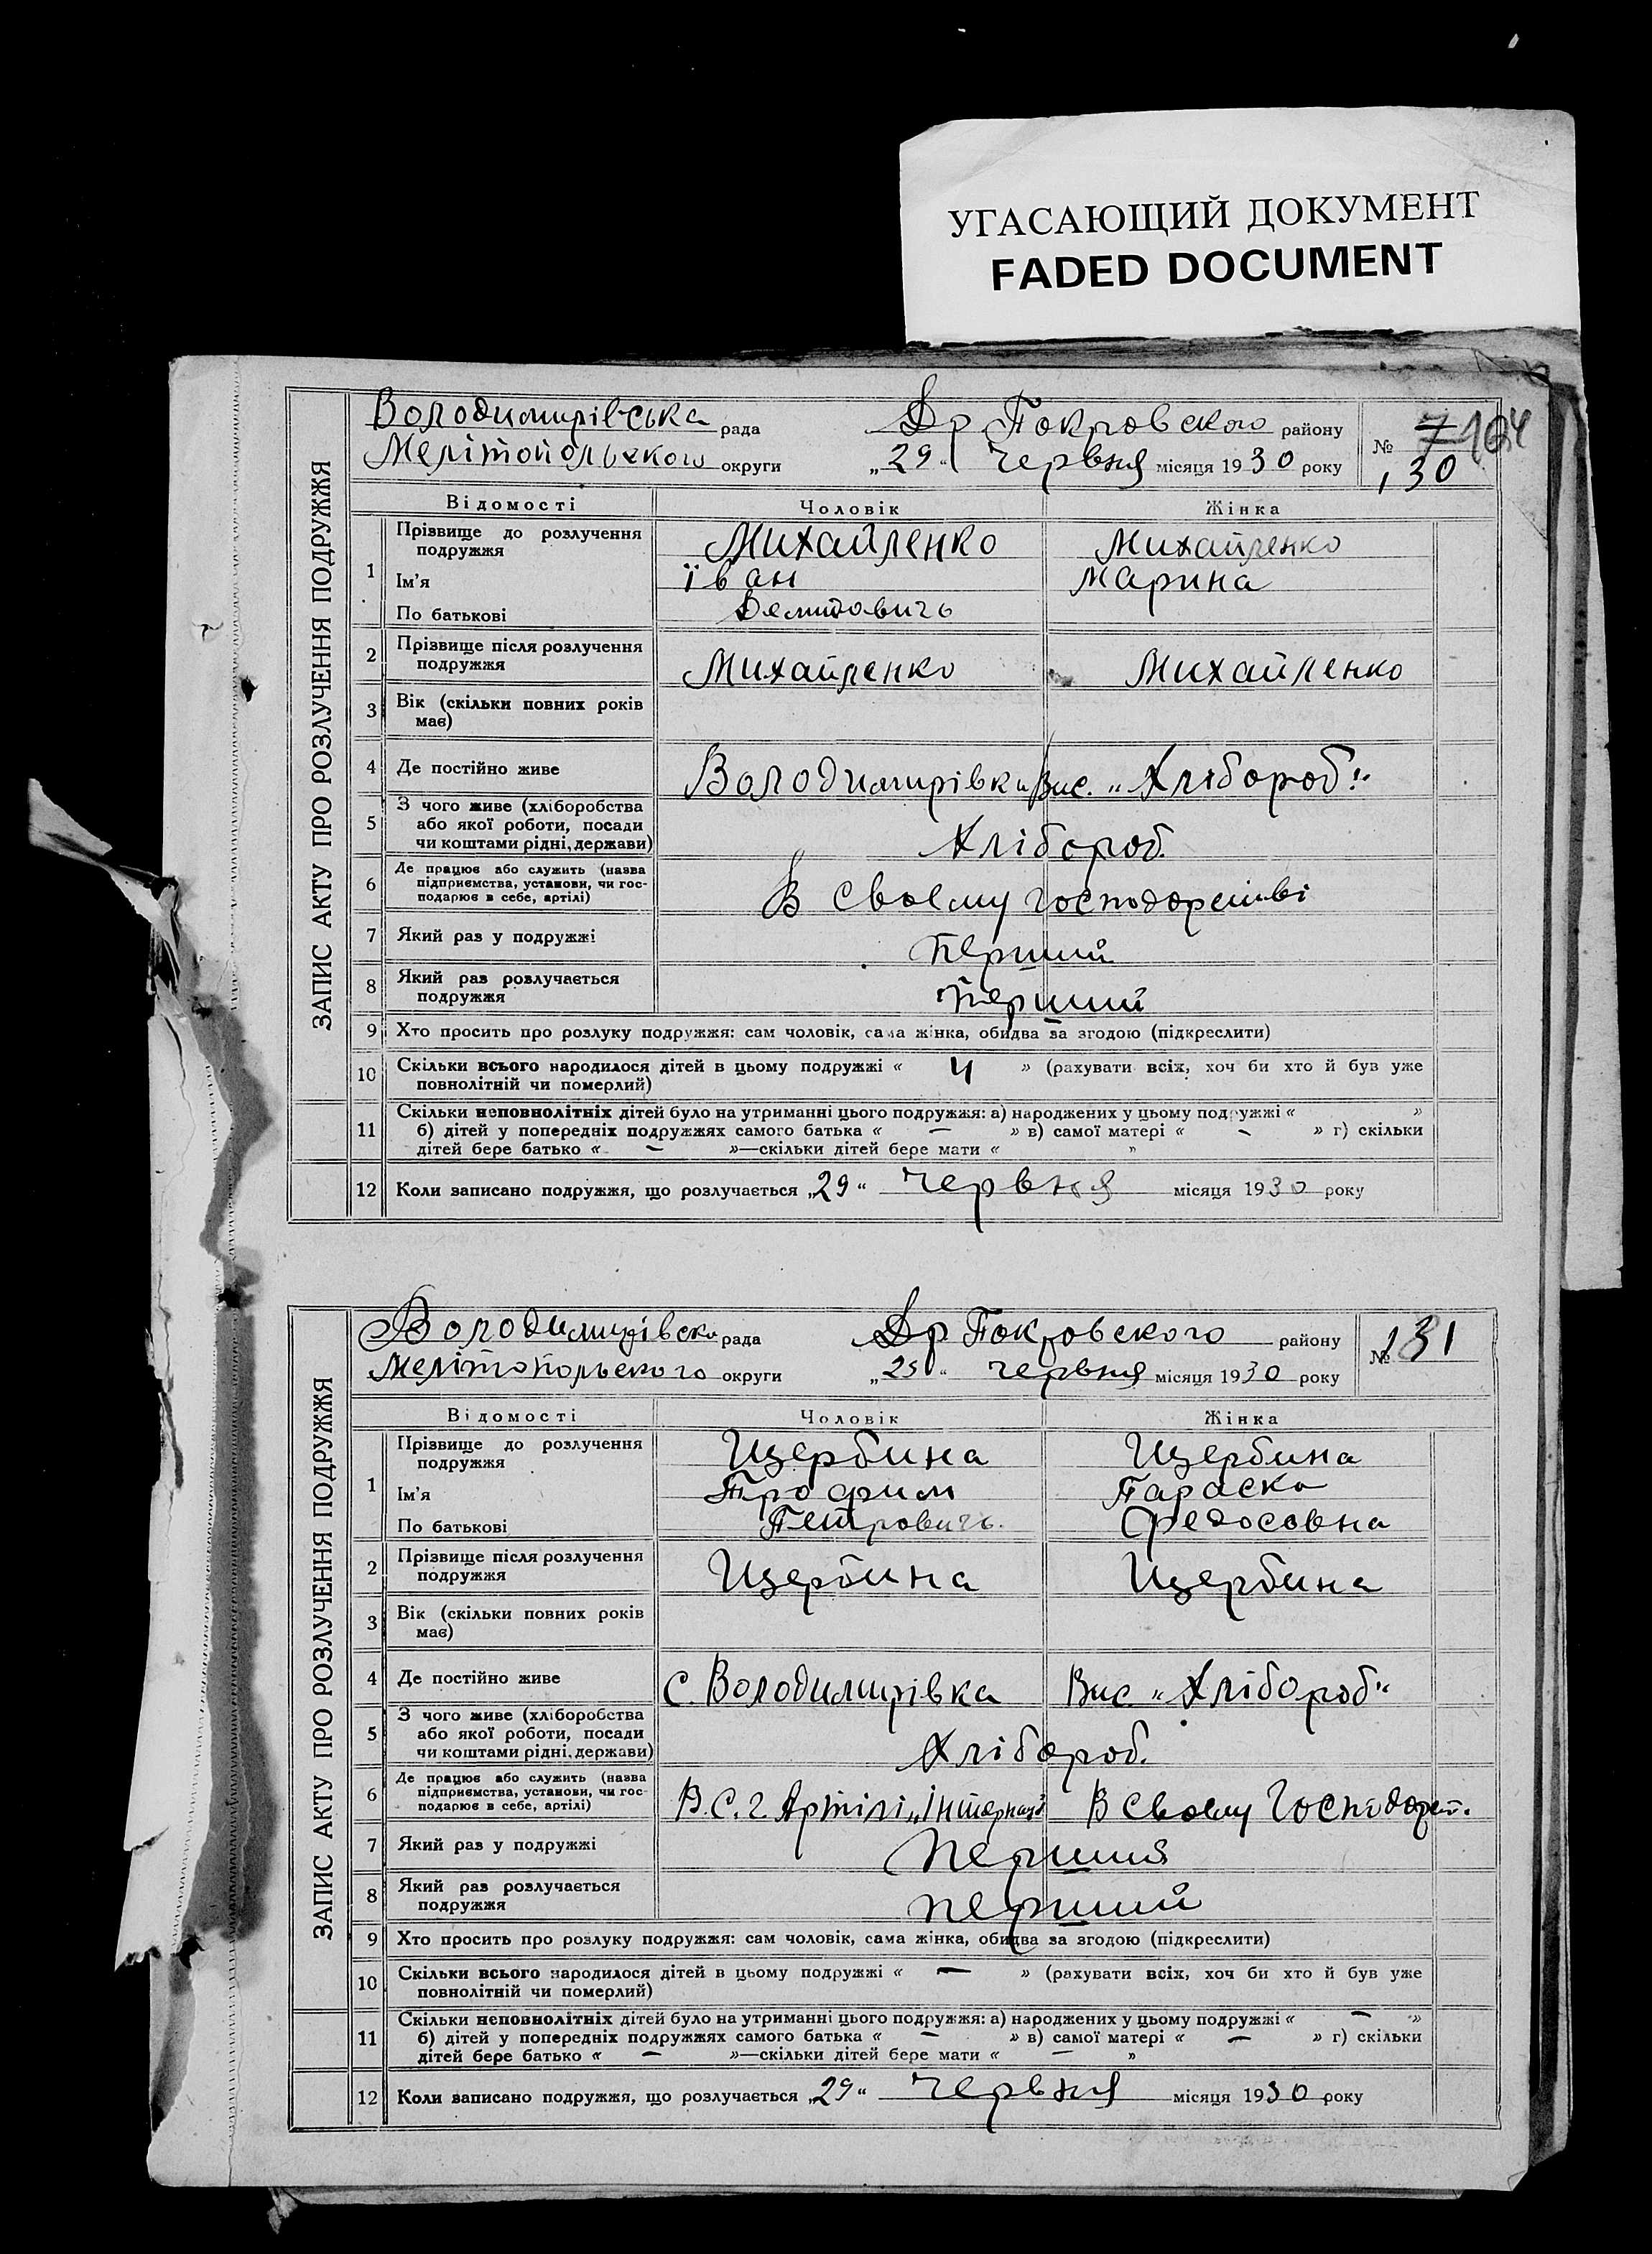 УГАСАЮЩИЙ ДОКУМЕНТ
FADED DOCUMENT
ЗАПИС АКТУ ПРО РОЗЛУЧЕННЯ ПОДРУЖЖЯ
Володимирівська рада Др Покровского району № 7 164
Мелітопольского округи „29“ Червня місяця 1930 року 130
Відомості Чоловік Жінка
1 Прізвище до розлучення подружжя Михайленко Михайленко
Ім'я Їван Марина
По батькові Демидовичь
2 Прізвище після розлучення подружжя Михайленко Михайленко
3 Вік (скільки повних років має)
4 Де постійно живе Володимирівка Вис. „Хлібороб“
5 З чого живе (хліборобства або якої роботи, посади чи коштами рідні, держави) Хлібороб.
6 Де працює або служить (назва підприємства, установи, чи господарює в себе, артілі) В своєму господорстві
7 Який раз у подружжі Перший
8 Який раз розлучається подружжя Перший
9 Хто просить про розлуку подружжя: сам чоловік, сама жінка, обидва за згодою (підкреслити)
10 Скільки всього народилося дітей в цьому подружжі « 4 » (рахувати всіх, хоч би хто й був уже
повнолітній чи померлий)
11 Скільки неповнолітніх дітей було на утриманні цього подружжя: а) народжених у цьому подружжі « »
б) дітей у попередніх подружжях самого батька « — » в) самої матері « — » г) скільки
дітей бере батько « — »—скільки дітей бере мати « »
12 Коли записано подружжя, що розлучається „29“ Червня місяця 1930 року
ЗАПИС АКТУ ПРО РОЗЛУЧЕННЯ ПОДРУЖЖЯ
Володимирівска рада Др Покровского району № 131
Мелітопольского округи „29“ червня місяця 1930 року
Відомості Чоловік Жінка
1 Прізвище до розлучення подружжя Щербина Щербина
Ім'я Трофим Параска
По батькові Петровичь. Федосовна
2 Прізвище після розлучення подружжя Щербина Щербина
3 Вік (скільки повних років має)
4 Де постійно живе С. Володимирівка Вис. „Хлібороб“
5 З чого живе (хліборобства або якої роботи, посади чи коштами рідні, держави) Хлібороб.
6 Де працює або служить (назва підприємства, установи, чи господарює в себе, артілі) В. С. г. Артілі „Інтернац“ В своєму Господорст.
7 Який раз у подружжі Перший
8 Який раз розлучається подружжя перший
9 Хто просить про розлуку подружжя: сам чоловік, сама жінка, обидва за згодою (підкреслити)
10 Скільки всього народилося дітей в цьому подружжі « — » (рахувати всіх, хоч би хто й був уже
повнолітній чи померлий)
11 Скільки неповнолітніх дітей було на утриманні цього подружжя: а) народжених у цьому подружжі « — »
б) дітей у попередніх подружжях самого батька « — » в) самої матері « — » г) скільки
дітей бере батько « — »—скільки дітей бере мати « — »
12 Коли записано подружжя, що розлучається „29“ Червня місяця 1930 року